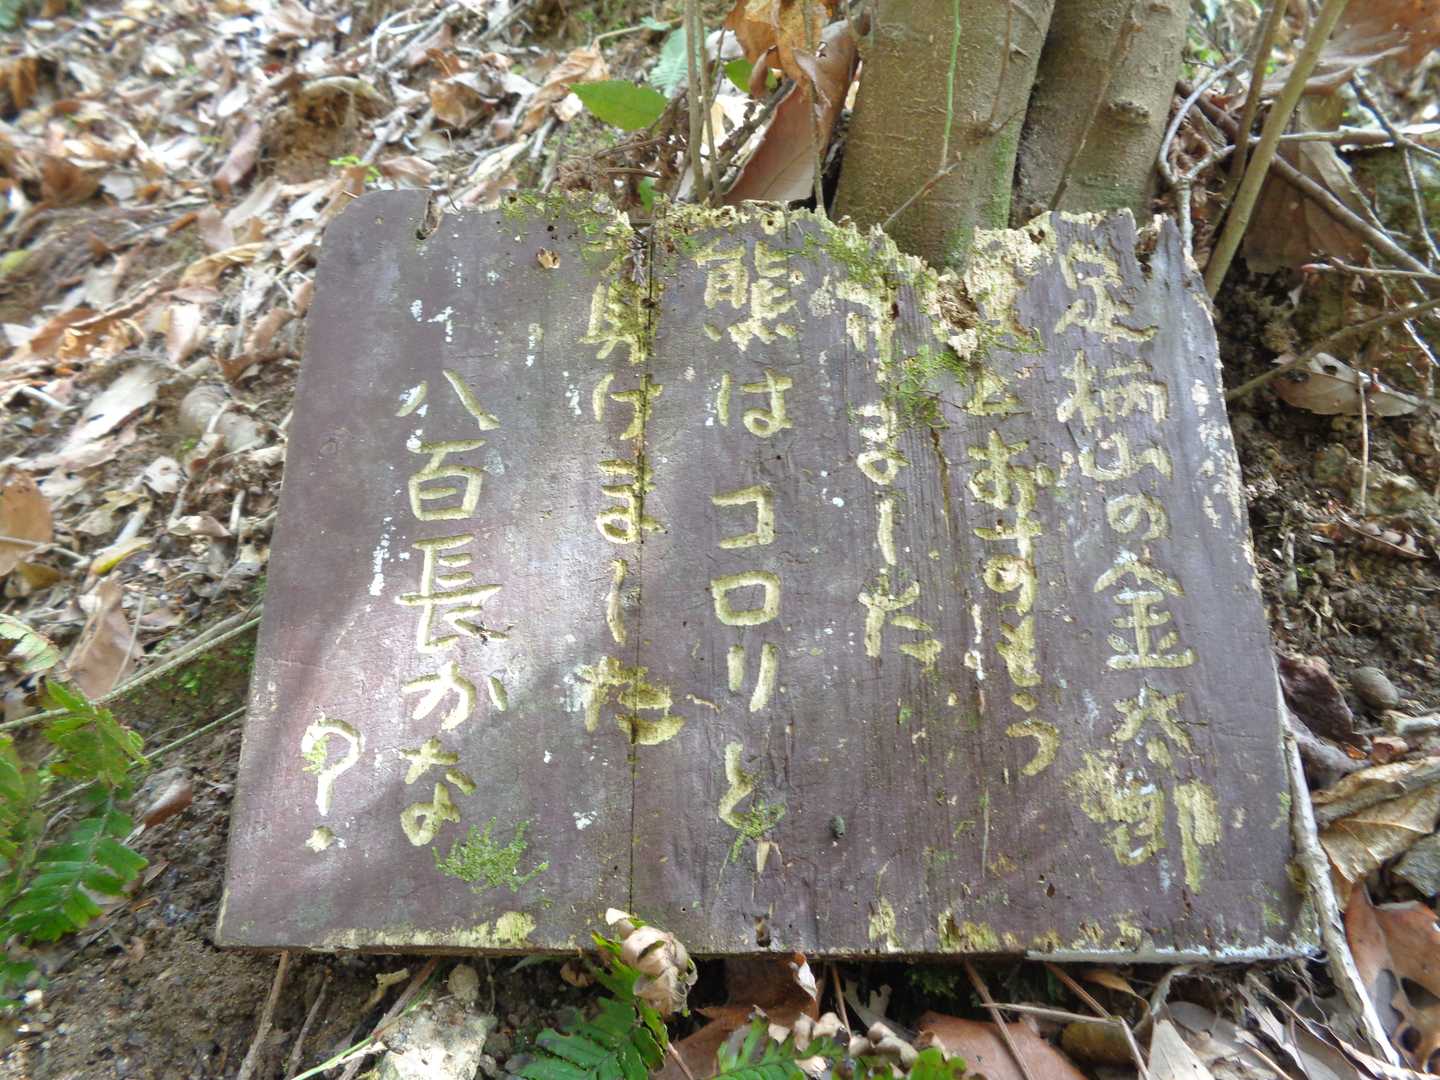 足柄山の金太郎
とおすもう
ました
熊はコロリと
負けました
八百長かな
？